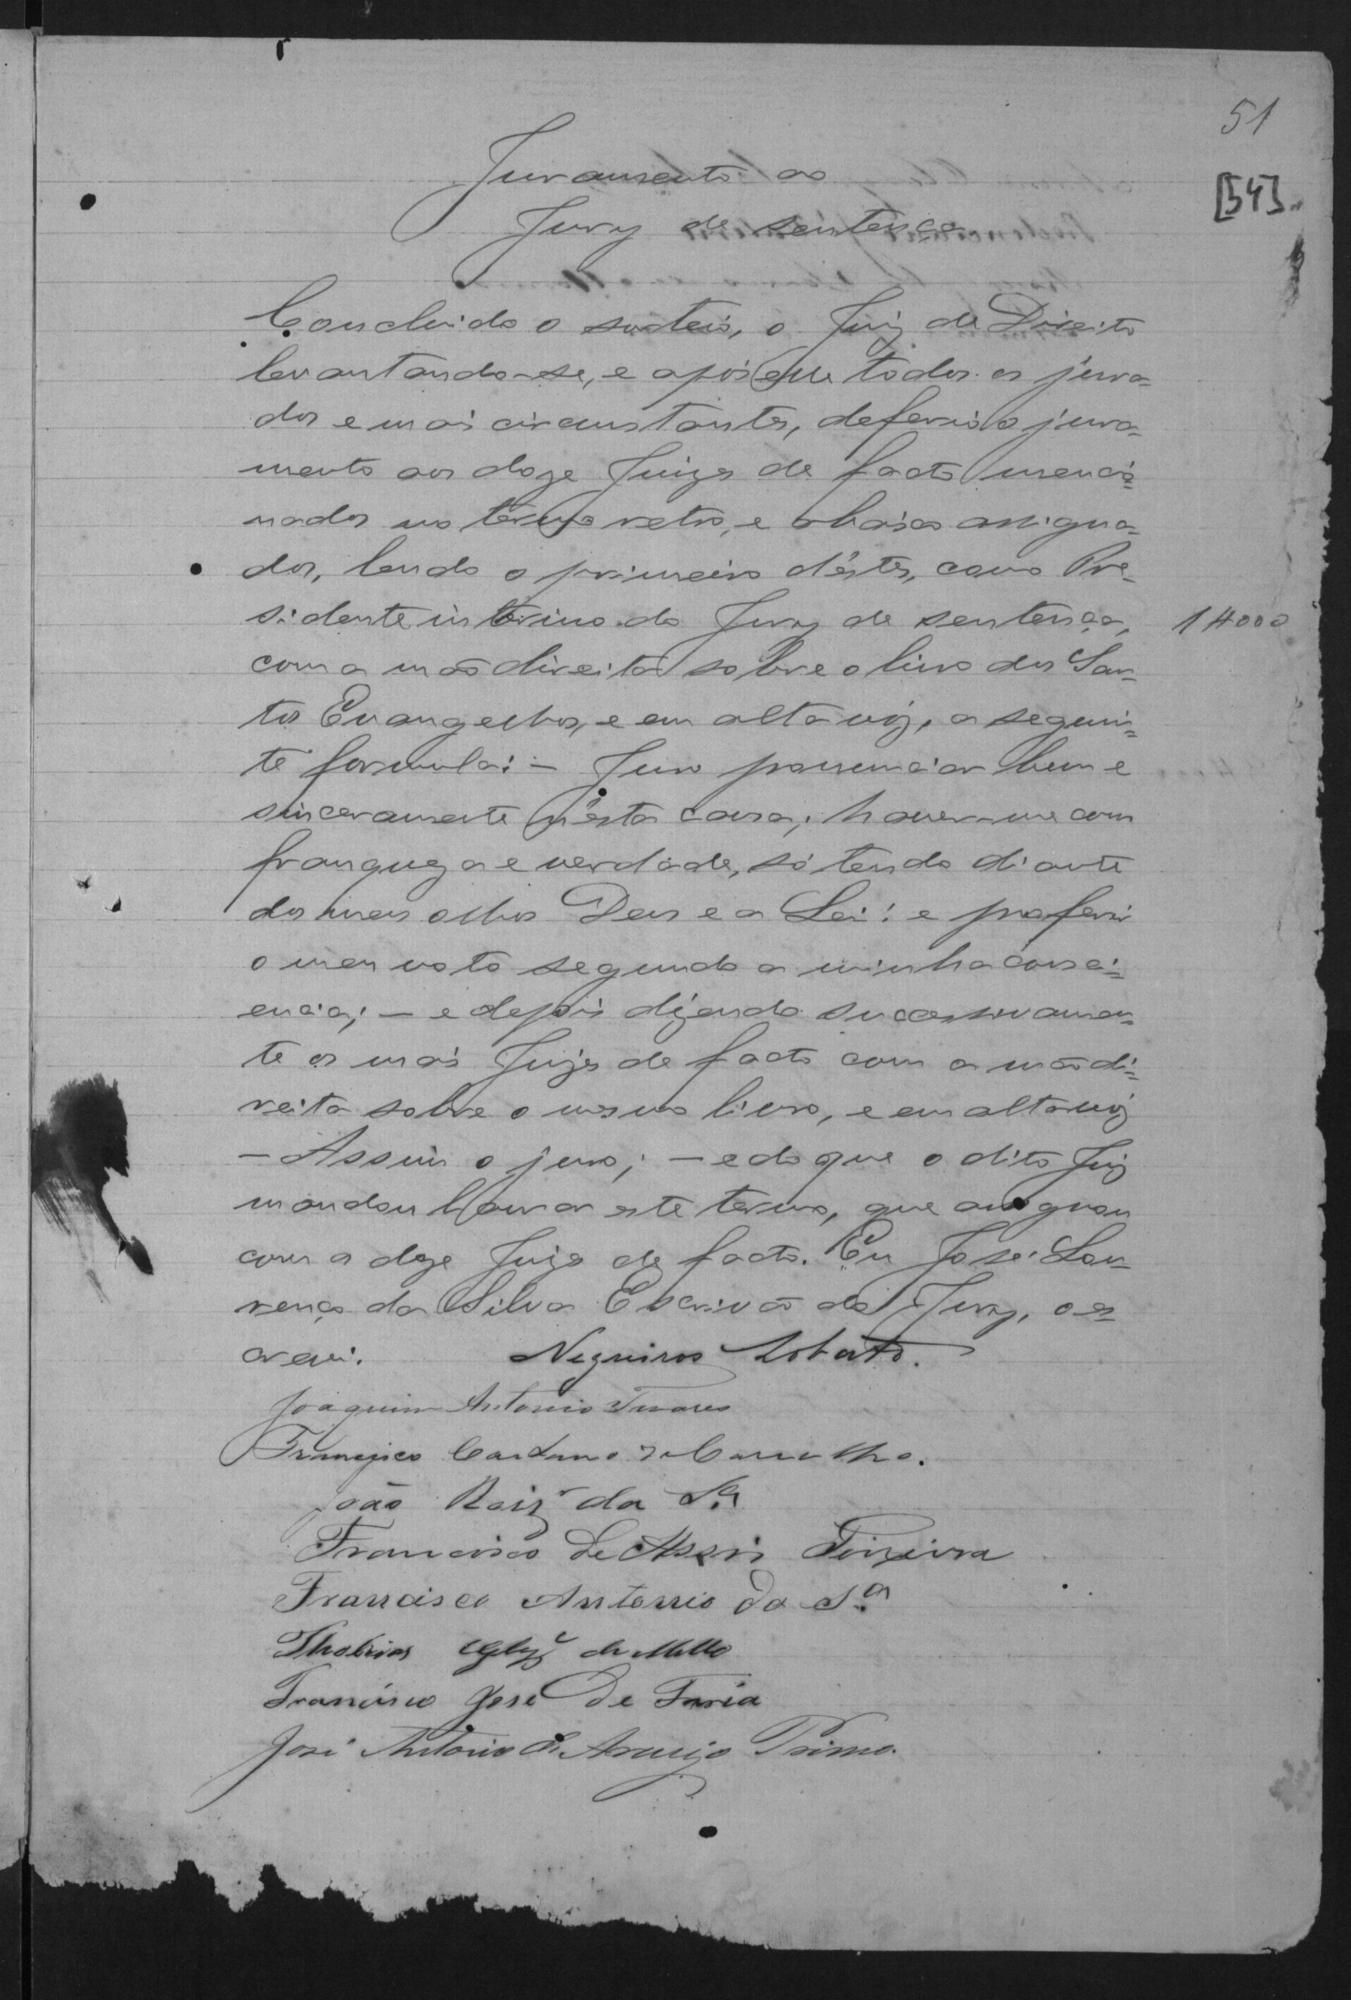 51
[54]
Juramento ao
Jury de sentença
Concluido o sorteio, o Juiz de Direito
levantando-se, e após elle todos os jura-
dos e mais circunstantes, deferio o jura-
mento aos doze Juizes de facto mencio-
nados no termo retro, e abaixo assigna-
dos, lendo o primeiro d'éstes, como Pre-
sidente interino do Jury de sentença,
1$000
com a mão direita sobre o livro dos San-
tos Evangelhos, e em alta vóz, a seguin-
te formula: – Juro pronunciar bem e
sinceramente n'esta causa; haver-me com
franqueza e verdade, só tendo diante
dos meus olhos Deus e a Lei: e proferir
o meu voto segundo a minha consci-
encia; – e depois dizendo successivamen-
te os mais Juizes de facto com a mão di-
reita sobre o mesmo livro, e em alta vóz
– Assim o juro; – e do que o dito Juiz
mandou lavrar este termo, que assignou
com os doze Juizes de facto. Eu José Lou-
renço da Silva Escrivão do Jury, o es-
crevi. Negreiros Lobato.
Joaquim Antonio Tavares
Francisco Caetano de Carvalho.
João Roiz da Sª
Francisco de Assis Teixeira
Francisco Antonio da Sª
Thobias de Mello
Francisco José de Faria
José Antonio de Araujo Primo.